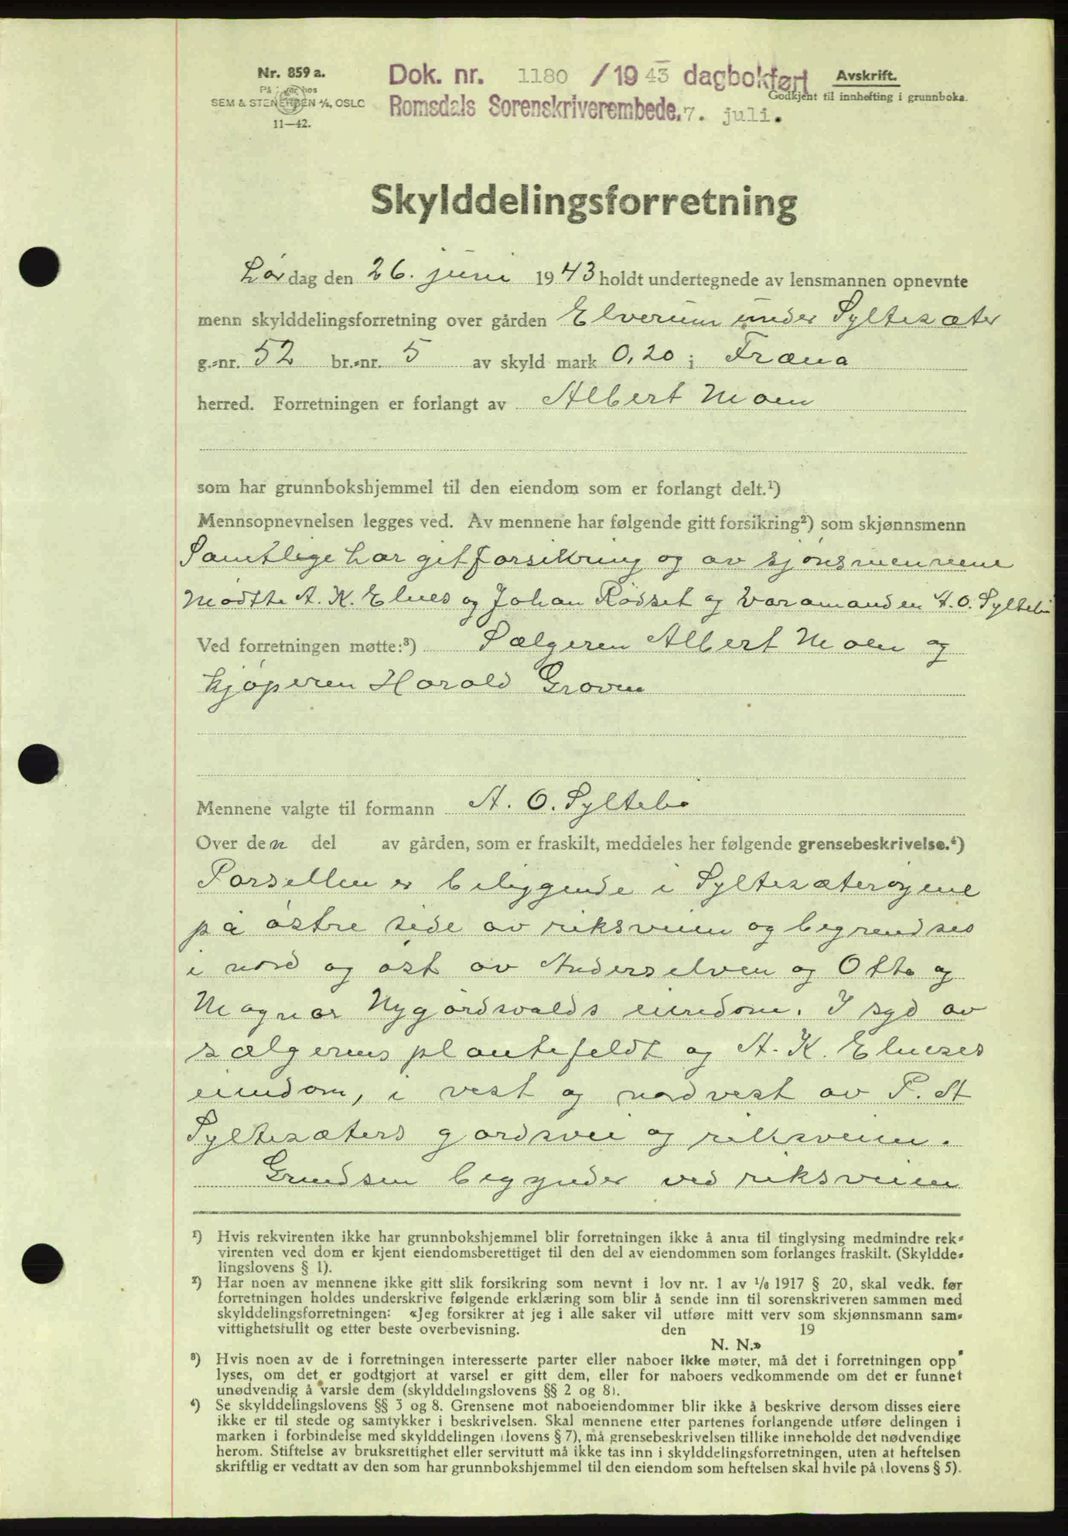 Nr. 859 a.
På hos
SEM & STENERSEN A/S, OSLO
11—42.
Dok. nr. 1180 /1943 dagbokført
Romsdals Sorenskriverembede, 7. juli.
Avskrift.
Godkjent til innhefting i grunnboka.
Skylddelingsforretning
Lørdag den 26. juni 1943 holdt undertegnede av lensmannen opnevnte
menn skylddelingsforretning over gården Elverum under Syltesæter
g.-nr. 52 br.-nr. 5 av skyld mark 0,20 i Fræna
herred. Forretningen er forlangt av Albert Moen
som har grunnbokshjemmel til den eiendom som er forlangt delt.¹)
Mennsopnevnelsen legges ved. Av mennene har følgende gitt forsikring²) som skjønnsmenn
Samtlige har git forsikring og av sjønsmennene
møtte A. K. Elnes og Johan Rødset og varamanden A. O. Syltebø
Ved forretningen møtte:³) Sælgeren Albert Moen og
kjøperen Harald Groven
Mennene valgte til formann A. O. Syltebø
Over den del av gården, som er fraskilt, meddeles her følgende grensebeskrivelse.⁴)
Parsellen er beliggende i Syltesæterøyene
på østre side av riksveien og begrendses
i nord og øst av Anderselven og Otto og
Magnar Nygårdsvolds eiendom. I syd av
sælgerens plantefeldt og A. K. Elneses
eiendom, i vest og nordvest av P. A
Syltesæters gårdsvei og riksveien.
Grendsen begynder ved riksveien
¹) Hvis rekvirenten ikke har grunnbokshjemmel blir forretningen ikke å anta til tinglysing medmindre rek-
virenten ved dom er kjent eiendomsberettiget til den del av eiendommen som forlanges fraskilt. (Skyldde-
lingslovens § 1).
²) Har noen av mennene ikke gitt slik forsikring som nevnt i lov nr. 1 av 1/6 1917 § 20, skal vedk. før
forretningen holdes underskrive følgende erklæring som blir å sende inn til sorenskriveren sammen med
skylddelingsforretningen: «Jeg forsikrer at jeg i alle saker vil utføre mitt verv som skjønnsmann sam-
vittighetsfullt og etter beste overbevisning. den 19
N. N.»
³) Hvis noen av de i forretningen interesserte parter eller naboer ikke møter, må det i forretningen opp
lyses, om det er godtgjort at varsel er gitt dem, eller for naboers vedkommende om det er funnet
unødvendig å varsle dem (skylddelingslovens §§ 2 og 8).
⁴) Se skylddelingslovens §§ 3 og 8. Grensene mot naboeiendommer blir ikke å beskrive dersom disses eiere
ikke er til stede og samtykker i beskrivelsen. Skal mennene etter partenes forlangende utføre delingen i
marken i forbindelse med skylddelingen (lovens § 7), må grensebeskrivelsen tillike inneholde det nødvendige
herom. Stiftelse av bruksrettighet eller servitutt må ikke tas inn i skylddelingsforretningen, uten at heftelsen
skriftlig er vedtatt av den som har grunnbokshjemmel til den eiendom som heftelsen skal hvile på (lovens § 5).